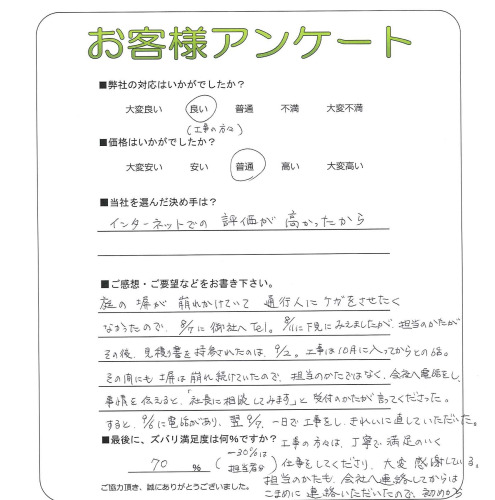 お客様アンケート
■弊社の対応はいかがでしたか?
大変良い 良い 普通 不満 大変不満
(工事の方々)
■価格はいかがでしたか?
大変安い 安い 普通 高い 大変高い
■当社を選んだ決め手は?
インターネットでの 評価が 高かったから
■ご感想・ご要望などをお書き下さい。
庭の 塀が 崩れかけていて 通行人に ケガをさせたく
なかったので、8/7に 御社へ Tel。8/11に下見にみえましたが、担当のかたが
その後、見積り書を持参されたのは、9/2。工事は10月に入ってからとの話。
その間にも 塀は崩れ続けていたので、担当のかたではなく、会社へ電話をし、
事情を伝えると、「社長に相談してみます」と 受付のかたが 言ってくださった。
すると、9/6に電話があり、翌9/7、一日で工事をし、きれいに直していただいた。
■最後に、ズバリ満足度は何%ですか?
70 %
(−30%は 担当者分)
工事の方々は、丁寧で、満足のいく
仕事をしてくださり、大変 感謝している。
担当のかたも、会社へ連絡してからは
こまめに 連絡いただいたので、初めから
ご協力頂き、誠にありがとうございました。